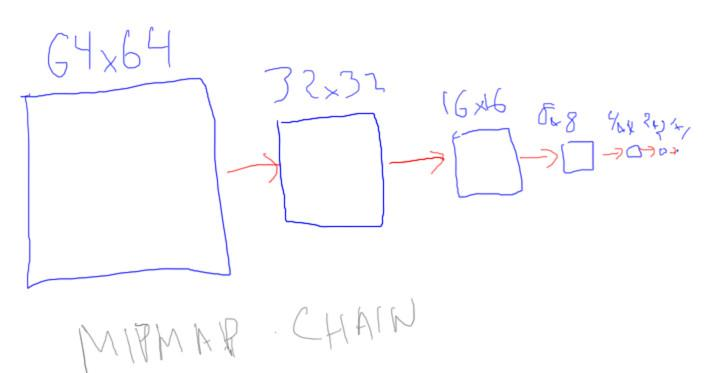 64x64
32x32
16x16
8x8
4x4 2x2 1x1
MIPMAP CHAIN